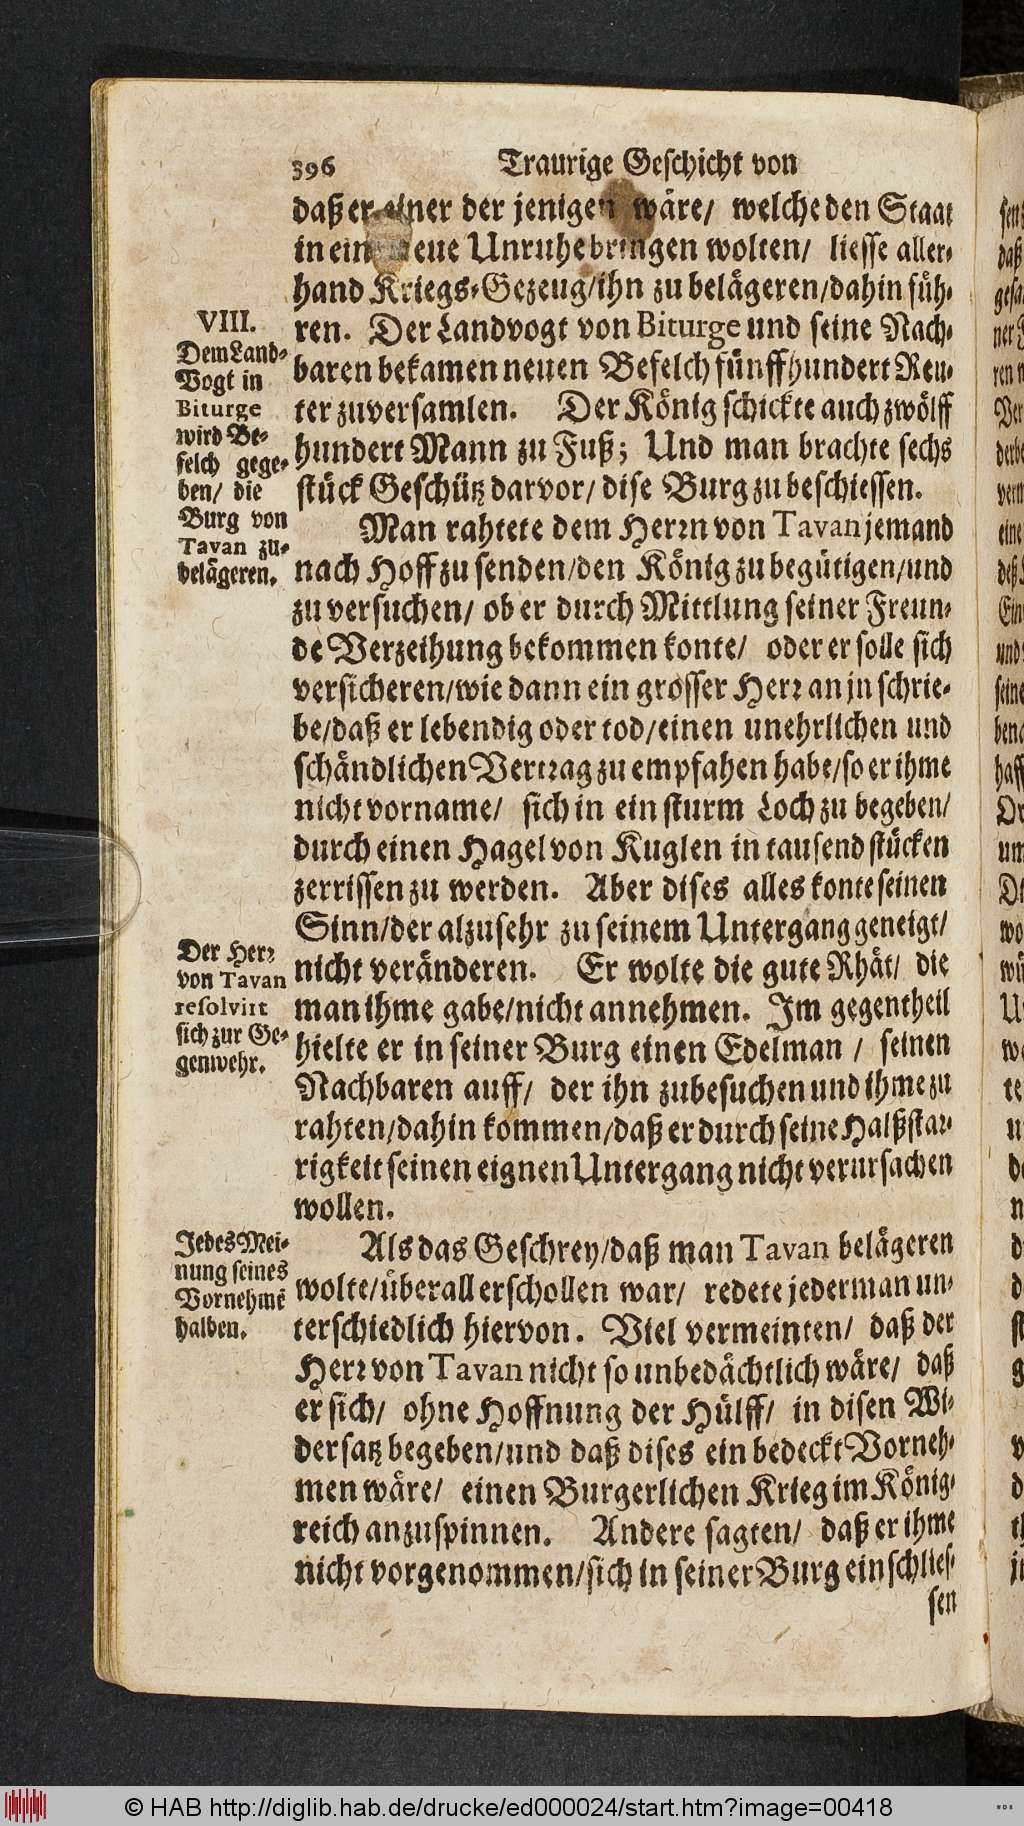 396 Traurige Geschicht von
daß er einer der jenigen wäre/ welche den Staat
in ein neue Unruhe bringen wolten/ liesse aller-
hand Kriegs-Gezeug/ihn zu belägeren/dahin füh-
ren. Der Landvogt von Biturge und seine Nach-
baren bekamen neuen Befelch fünffhundert Reu-
ter zuversamlen. Der König schickte auch zwölff
hundert Mann zu Fuß; Und man brachte sechs
stück Geschütz darvor/ dise Burg zu beschiessen.
VIII.
Dem Land-
Vogt in
Biturge
wird Be-
felch gege-
ben/ die
Burg von
Tavan zu-
belägeren.
Man rahtete dem Herrn von Tavan jemand
nach Hoff zu senden/den König zu begütigen/und
zu versuchen/ ob er durch Mittlung seiner Freun-
de Verzeihung bekommen konte/ oder er solle sich
versicheren/wie dann ein grosser Herr an jn schrie-
be/daß er lebendig oder tod/einen unehrlichen und
schändlichen Vertrag zu empfahen habe/so er ihme
nicht vorname/ sich in ein sturm Loch zu begeben/
durch einen Hagel von Kuglen in tausend stücken
zerrissen zu werden. Aber dises alles konte seinen
Sinn/der alzusehr zu seinem Untergang geneigt/
nicht veränderen. Er wolte die gute Rhät/ die
man ihme gabe/nicht annehmen. Im gegentheil
hielte er in seiner Burg einen Edelman / seinen
Nachbaren auff/ der ihn zubesuchen und ihme zu
rahten/dahin kommen/daß er durch seine Halßstar-
rigkeit seinen eignen Untergang nicht verursachen
wollen.
Der Herr
von Tavan
resolvirt
sich zur Ge-
genwehr.
Als das Geschrey/daß man Tavan belägeren
wolte/überall erschollen war/ redete jederman un-
terschiedlich hiervon. Viel vermeinten/ daß der
Herr von Tavan nicht so unbedächtlich wäre/ daß
er sich/ ohne Hoffnung der Hülff/ in disen Wi-
dersatz begeben/und daß dises ein bedeckt Vorneh-
men wäre/ einen Burgerlichen Krieg im König-
reich anzuspinnen. Andere sagten/ daß er ihme
nicht vorgenommen/sich in seiner Burg einschlies-
sen
Jedes Mei-
nung seines
Vornehmẽ
halben.
© HAB http://diglib.hab.de/drucke/ed000024/start.htm?image=00418